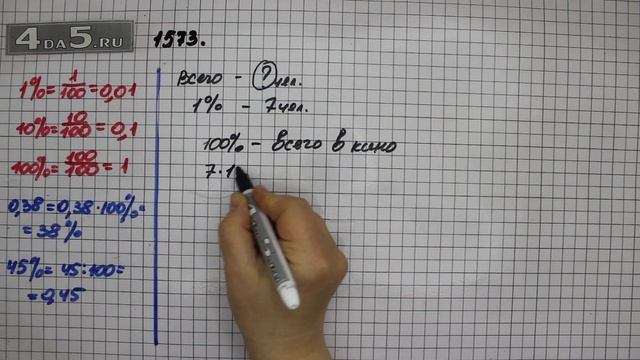 4DA5.RU
1573.
1% = 1/100 = 0,01
10% = 10/100 = 0,1
100% = 100/100 = 1
0,38 = 0,38 · 100% =
= 38%
45% = 45 : 100 =
= 0,45
Всего - ? чел.
1% - 7 чел.
100% - всего в кино
7 · 1